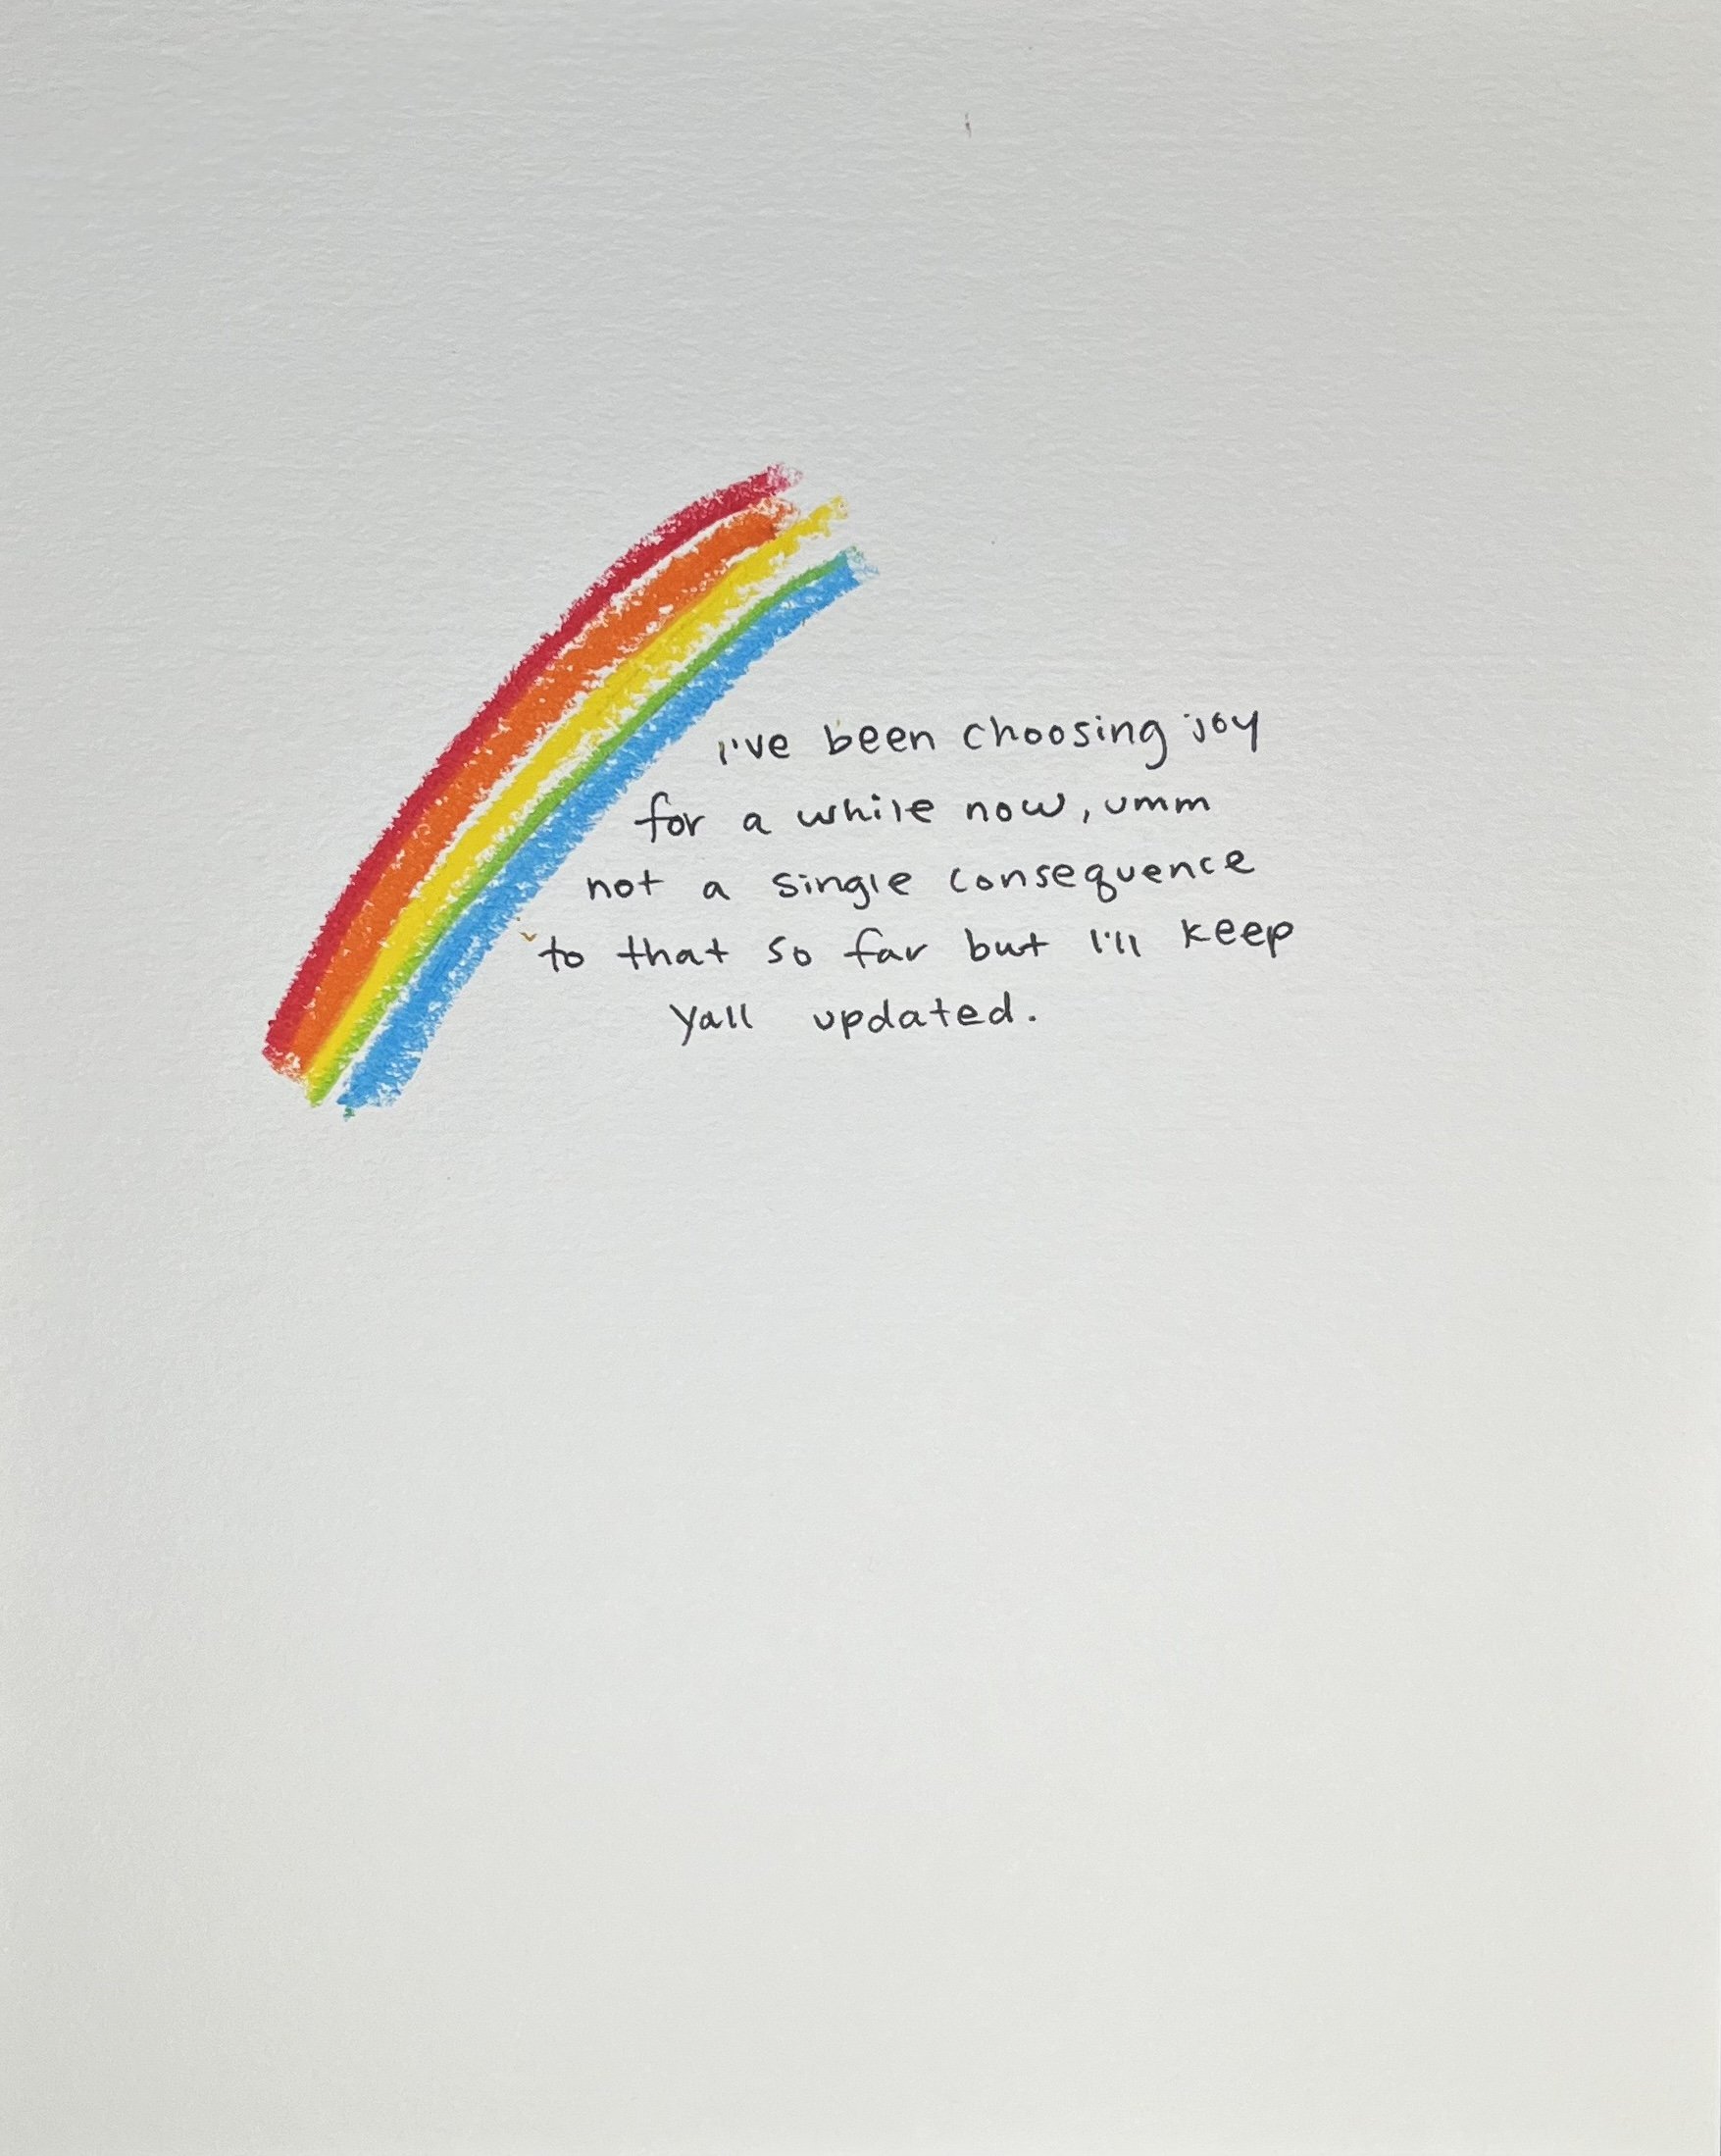 i've been choosing joy
for a while now, umm
not a single consequence
to that so far but i'll keep
yall updated.